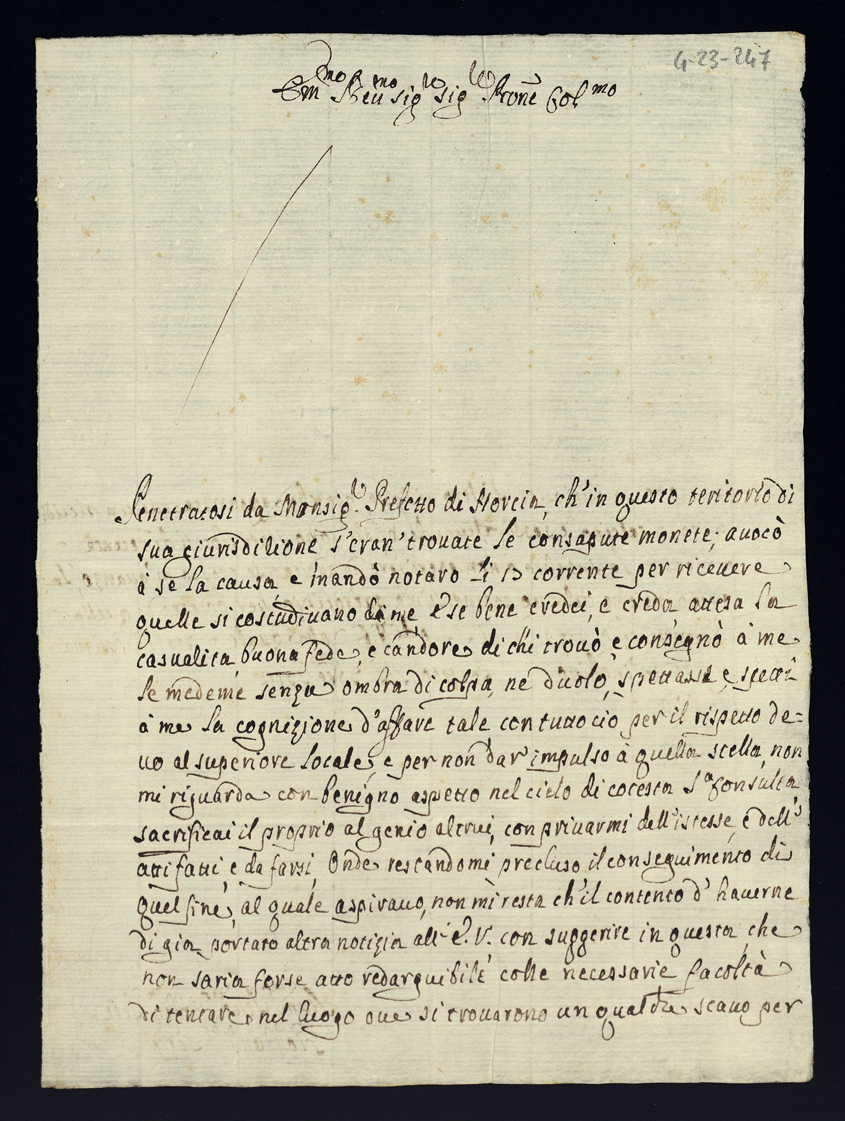 4-23-247
Em.mo Reu.mo Sig.re Sig.re Prone Col.mo
Penetratosi da Monsig.r Prefetto di Norcia, ch'in questo teritorio di
sua giurisdizione s'eran' trouate le consapute monete; auocò
à sè la causa, e mandò notaro li 13 corrente per riceuere
quelle si costudiuano da me, e se bene credei, e creda attesa la
casualità, buona fede, e candore di chi trouò, e consegnò à me
le medeme senza ombra di colpa, ne duolo, spettasse, e spetti
à me la cognizione d'affare tale con tutto ciò per il rispetto de=
uo al superiore locale, e per non dar' impulso à quella stella, non
mi riguarda con benigno aspetto nel cielo di cotesta S.a Consulta
sacrificai il proprio al genio altrui, con priuarmi dell'istesse, e dell'
atti fatti e da farsi, Onde restandomi precluso il conseguimento di
quel fine, al quale aspirauo, non mi resta ch'il contento d' hauerne
di già portato altra notizia all' E. V. con suggerire in questa, che
non saria forse atto redarguibile colle necessarie facoltà
di tentare nel luogo oue si trouarono un qualche scauo per